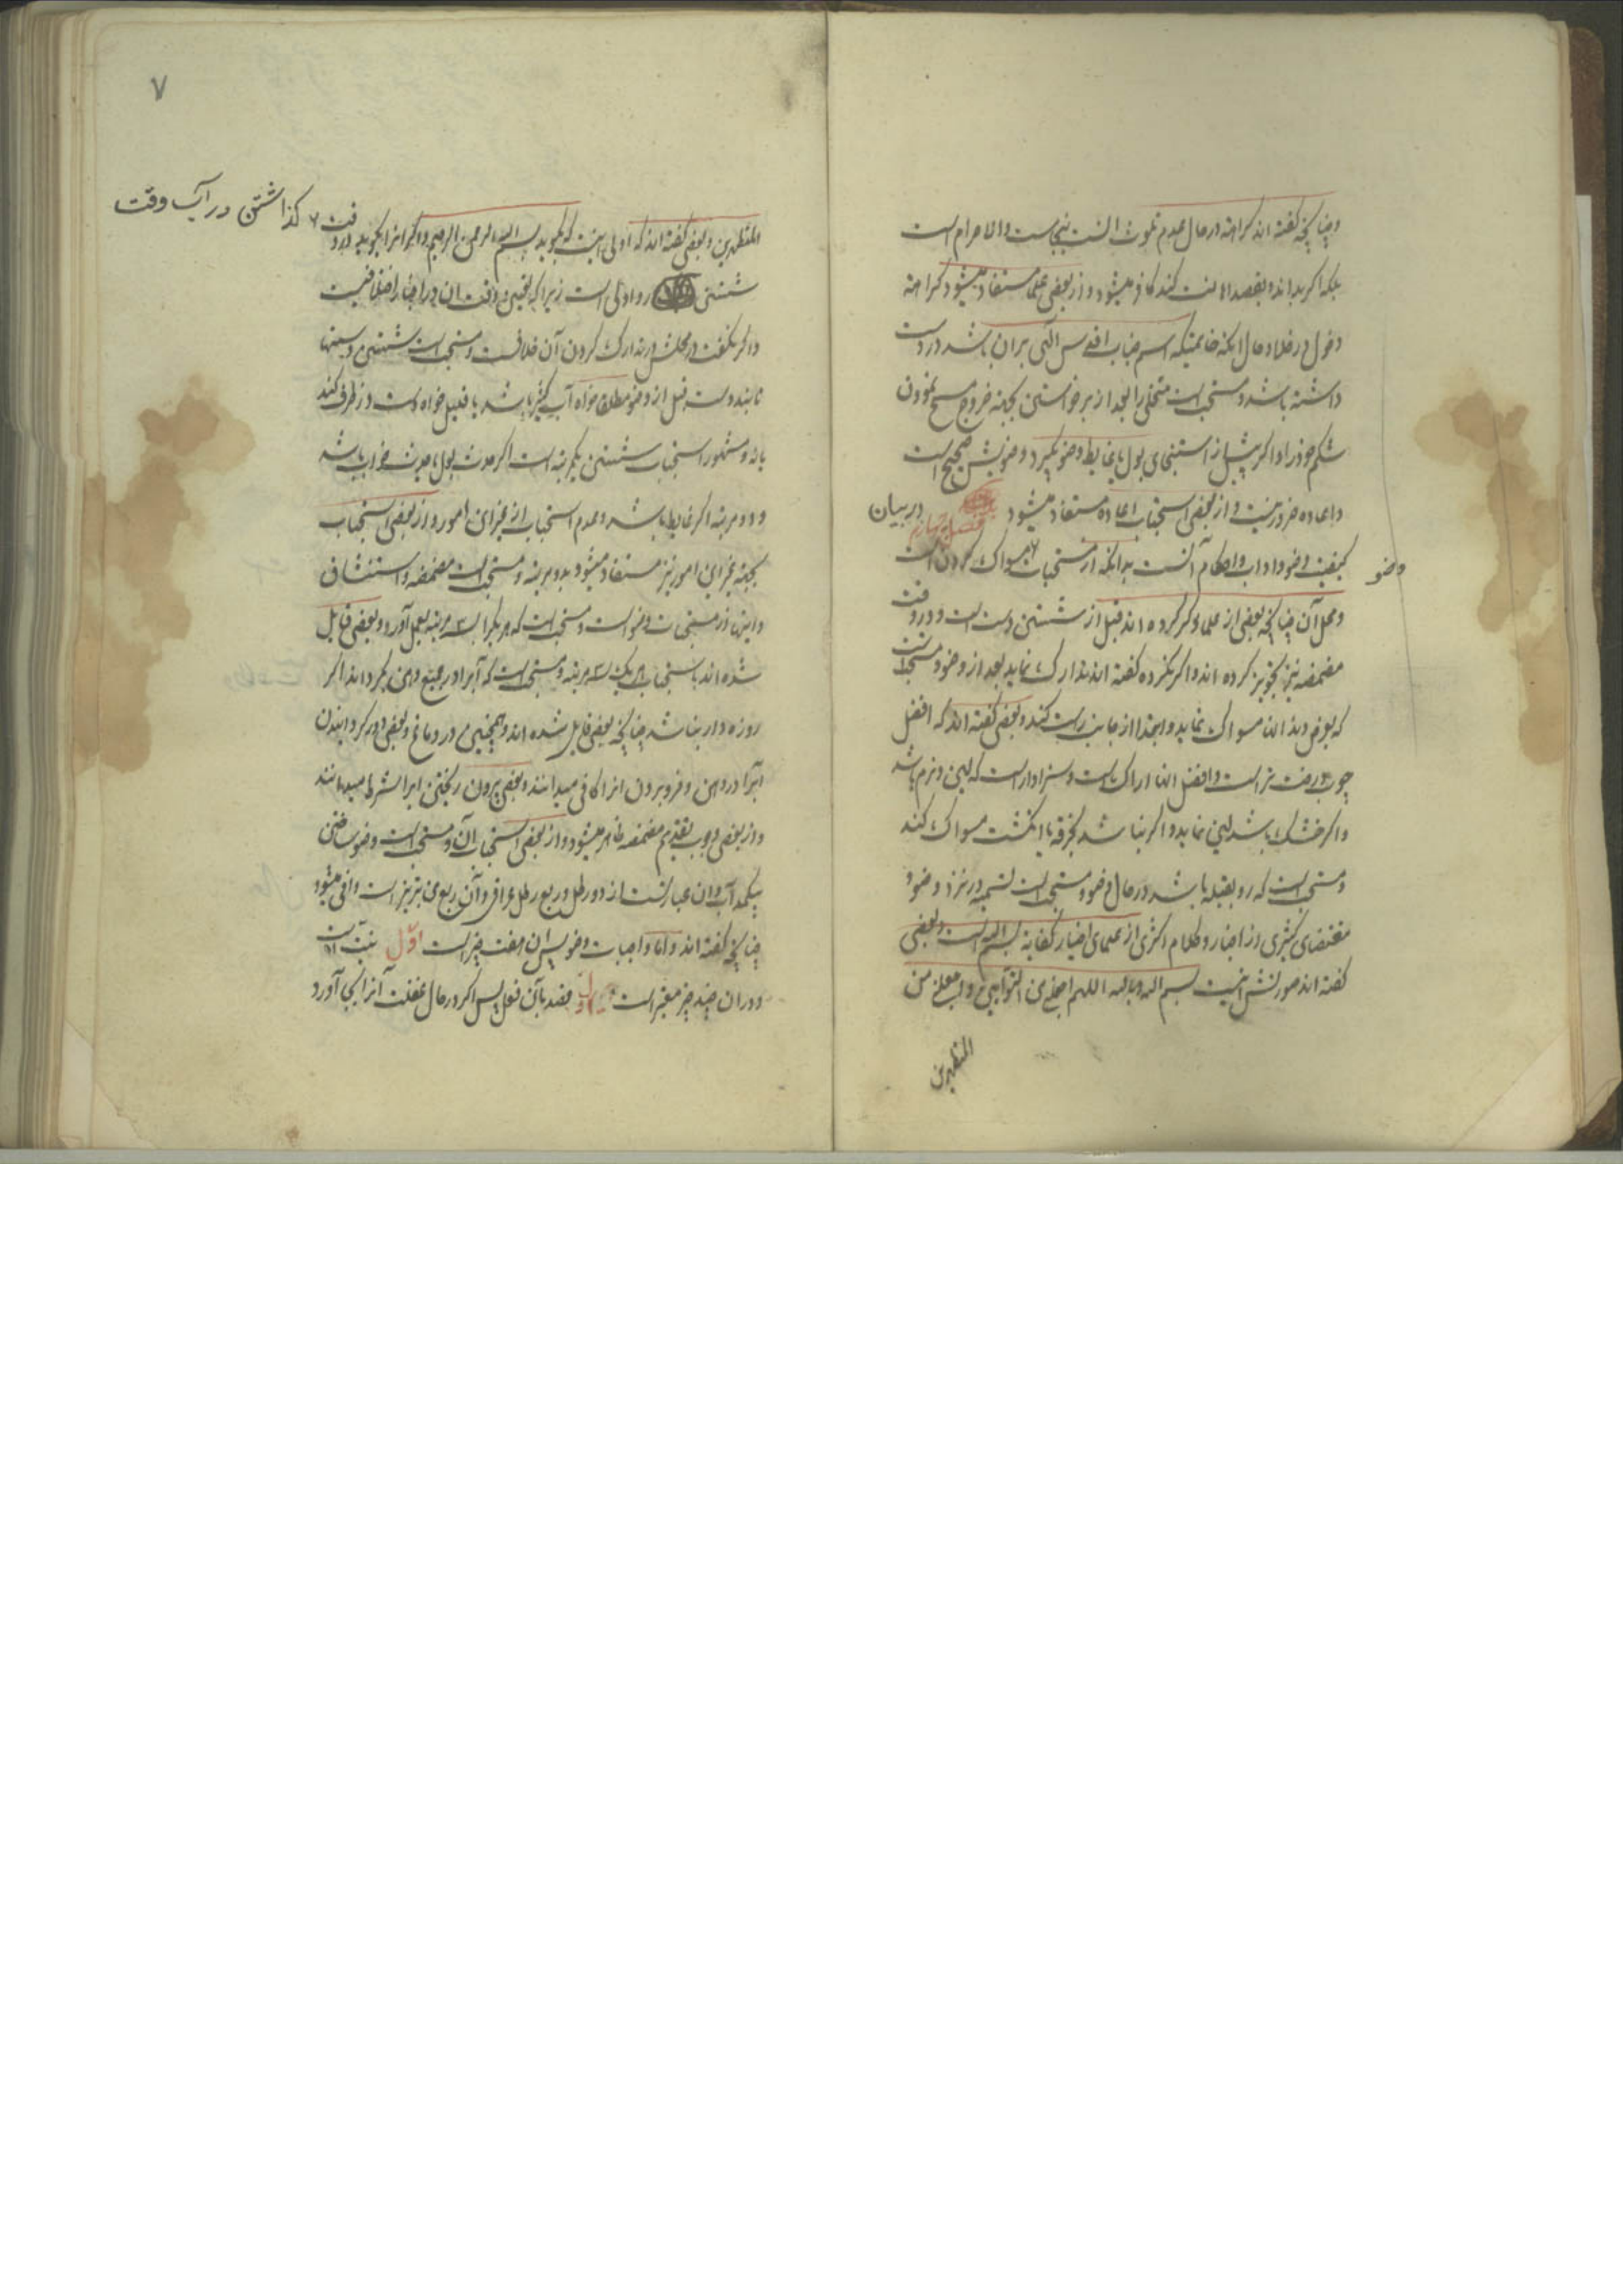 وچنانچه گفته اند کراهة در حال عدم تلوث آنست بنجاست والا حرام است
بلکه اگر بداند و بقصد اهانت کند کافر میشود و از بعضی علما مستفاد میشود کراهة
دخول در خلا و حال آنکه خاتمیکه اسم جناب اقدس الهی بران باشد در دست
داشته باشد و مستحب است متخلی را بعد از برخواستن بجهة خروج مسح نمودن
شکم خود را و اگر پیش از استنجای بول یا غایط وضو بگیرد وضویش صحیح است
و اعاده ضرور نیست و از بعضی استحباب اعاده مستفاد میشود فصل چهارم در بیان
کیفیت وضو و اداب و احکام آنست بدانکه از مستحبات وضو مسواک کردن است
ومحل آن چنانچه بعضی از علما ذکر کرده اند قبل از شستن دست است و در وقت
مضمضه نیز تجویز کرده اند و اگر نکرده گفته اند تدارک نماید بعد از وضو و مستحب است
که بعرض دندان مسواک نماید و ابتدا از جانب راست کند و بعضی گفته اند که افضل
چوب درخت تر است و افضل آنها اراک است و سزاوار است که لین و نرم باشد
واگر خشک باشد لین نماید و اگر نباشد بخرقه یا انگشت مسواک کند
و مستحب است که رو بقبله باشد در حال وضو و مستحب است تسمیه در نزد وضو و
مقتضای کثیری از اخبار و کلام اکثری از علمای اخیار کفایة بسم الله است و بعضی
گفته اند صورتش اینست بسم الله وبالله اللهم اجعلنی من التوابین واجعلنی من
المتطهرین
وضو
۷
المتطهرین و بعضی گفته اند که اولی اینست که بگوید بسم الله الرحمن الرحیم و اگر انرا بگوید در وقت
گذاشتن در آب وقت
شستن رو اولی است زیرا که تعیین وقت ان در اخبار اختلافیست
واگر نگفت در محلش در تدارک کردن آن خلافست و مستحب است شستن دستها
تا بند دست قبل از وضو مطلقا خواه آب کثیر باشد یا قلیل خواه دست در ظرف کند
یا نه و مشهور استحباب شستن یکمرتبه است اگر حدث بول یا حدث خواب باشد
و دو مرتبه اگر غایط باشد و عدم استحباب از غیر این امور و از بعضی استحباب
بجهة غیر این امور نیز مستفاد میشود بدو مرتبه و مستحب است مضمضه و استنشاق
و اینها از مستحبات وضو است و مستحب است که هر یکرا سه مرتبه بعمل آورد و بعضی قایل
شده اند باستحباب هر یک سه مرتبه و مستحب است که آبرا در جمیع دهن بگرداند اگر
روزه دار نباشد چنانچه بعضی قایل شده اند و همچنین در دماغ و بعضی دور گردانیدن
آبرا در دهن و فرو بردن انرا کافی میدانند و بعضی بیرون ریختن ابرا شرط میدانند
و از بعضی وجوب تقدیم مضمضه ظاهر میشود و از بعضی استحباب آن و مستحب است وضو ساختن
بیکمد آب و ان عبارتست از دو رطل و ربع رطل عراقی و آن ربع من تبریز است وافی میشود
چنانچه گفته اند و اما واجبات وضو پس ان هفت چیز است اوّل نیّت است
و دران چند چیز معتبر است اوّل قصد بآن فعل پس اگر در حال غفلت آنرا بجا آورد